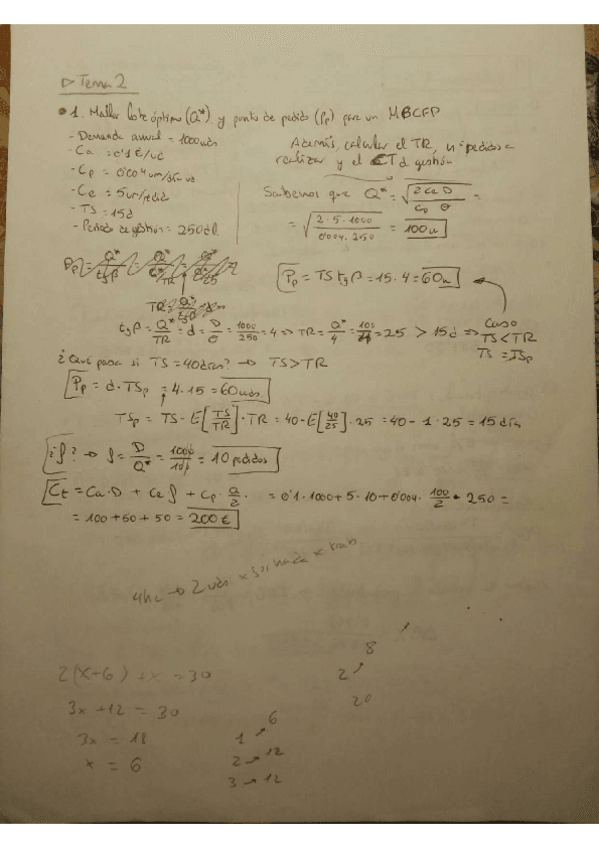 ▷ Tema 2
• 1. Hallar lote óptimo (Q*) y punto de pedido (Pp) para un MBCFP
- Demanda anual = 1000 uds
- Ca = 0'1 €/ud
- Cp = 0'004 um/día ud
- Ce = 5 um/pedido
- TS = 15 d
- Periodo de gestión = 250 d
Además, calcular el TR, nº pedidos a
realizar y el CT d gestión
Sabemos que Q* = √(2 Ce D / Cp θ) =
= √(2 · 5 · 1000 / 0'004 · 250) = 100 u
Pp = TS tg β = 15 · 4 = 60 u
tg β = Q*/TR = d = D/θ = 1000/250 = 4 ⇒ TR = Q*/4 = 100/4 = 25 > 15 d ⇒
Caso
TS < TR
TS = TSp
¿Qué pasa si TS = 40 días? → TS > TR
Pp = d · TSp = 4 · 15 = 60 uds
TSp = TS - E[TS/TR] · TR = 40 - E[40/25] · 25 = 40 - 1 · 25 = 15 días
¿f? → f = D/Q* = 1000/100 = 10 pedidos
Ct = Ca · D + Ce f + Cp · Q/2 · = 0'1 · 1000 + 5 · 10 + 0'004 · 100/2 · 250 =
= 100 + 50 + 50 = 200 €
→ 2 uds ×
2(x+6) + x = 30
3x + 12 = 30
3x = 18
x = 6
6
1
2 → 12
3 → 12
8
2
20